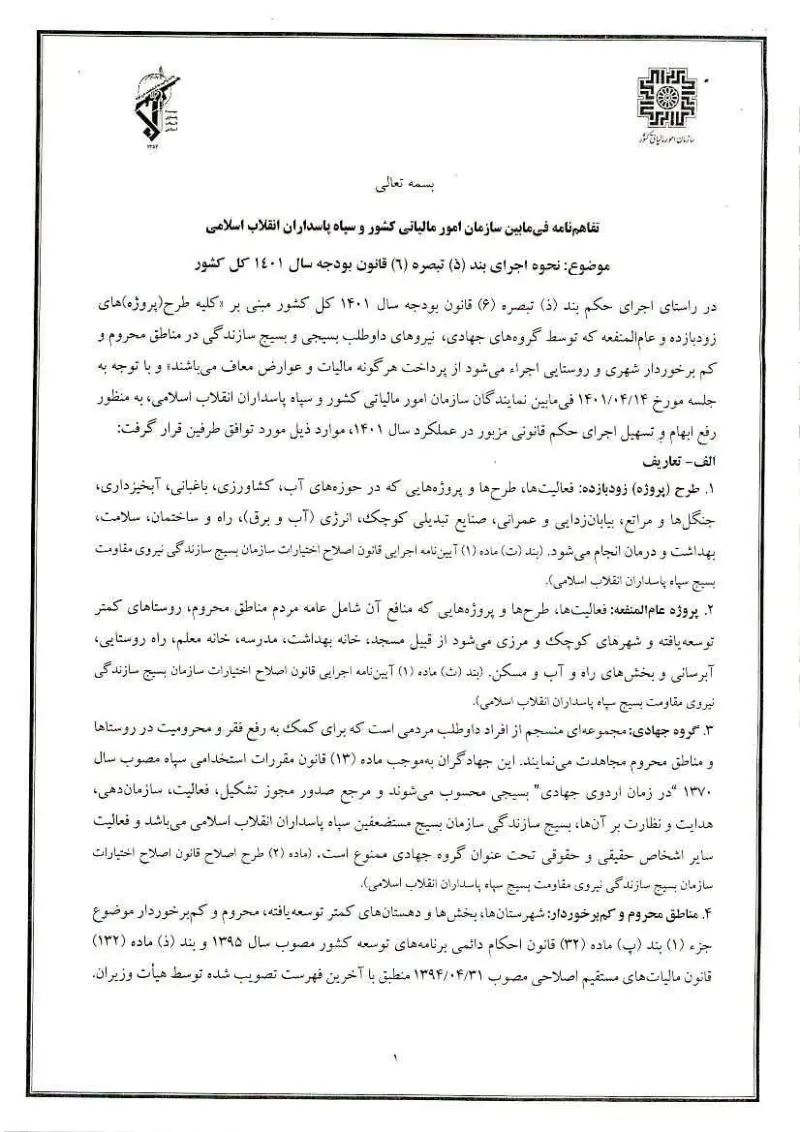 ۱۳۵۷
سازمان امور مالیاتی کشور
بسمه تعالی
تفاهم‌نامه فی‌مابین سازمان امور مالیاتی کشور و سپاه پاسداران انقلاب اسلامی
موضوع: نحوه اجرای بند (ذ) تبصره (٦) قانون بودجه سال ١٤٠١ کل کشور
در راستای اجرای حکم بند (ذ) تبصره (۶) قانون بودجه سال ۱۴۰۱ کل کشور مبنی بر «کلیه طرح(پروژه)های
زودبازده و عام‌المنفعه که توسط گروه‌های جهادی، نیروهای داوطلب بسیجی و بسیج سازندگی در مناطق محروم و
کم برخوردار شهری و روستایی اجراء می‌شود از پرداخت هرگونه مالیات و عوارض معاف می‌باشند» و با توجه به
جلسه مورخ ۱۴۰۱/۰۴/۱۴ فی‌مابین نمایندگان سازمان امور مالیاتی کشور و سپاه پاسداران انقلاب اسلامی، به منظور
رفع ابهام و تسهیل اجرای حکم قانونی مزبور در عملکرد سال ۱۴۰۱، موارد ذیل مورد توافق طرفین قرار گرفت:
الف- تعاریف
۱. طرح (پروژه) زودبازده: فعالیت‌ها، طرح‌ها و پروژه‌هایی که در حوزه‌های آب، کشاورزی، باغبانی، آبخیزداری،
جنگل‌ها و مراتع، بیابان‌زدایی و عمرانی، صنایع تبدیلی کوچک، انرژی (آب و برق)، راه و ساختمان، سلامت،
بهداشت و درمان انجام می‌شود. (بند (ت) ماده (۱) آیین‌نامه اجرایی قانون اصلاح اختیارات سازمان بسیج سازندگی نیروی مقاومت
بسیج سپاه پاسداران انقلاب اسلامی).
۲. پروژه عام‌المنفعه: فعالیت‌ها، طرح‌ها و پروژه‌هایی که منافع آن شامل عامه مردم مناطق محروم، روستاهای کمتر
توسعه‌یافته و شهرهای کوچک و مرزی می‌شود از قبیل مسجد، خانه بهداشت، مدرسه، خانه معلم، راه روستایی،
آبرسانی و بخش‌های راه و آب و مسکن. (بند (ث) ماده (۱) آیین‌نامه اجرایی قانون اصلاح اختیارات سازمان بسیج سازندگی
نیروی مقاومت بسیج سپاه پاسداران انقلاب اسلامی).
۳. گروه جهادی: مجموعه‌ای منسجم از افراد داوطلب مردمی است که برای کمک به رفع فقر و محرومیت در روستاها
و مناطق محروم مجاهدت می‌نمایند. این جهادگران به‌موجب ماده (۱۳) قانون مقررات استخدامی سپاه مصوب سال
۱۳۷۰ "در زمان اردوی جهادی" بسیجی محسوب می‌شوند و مرجع صدور مجوز تشکیل، فعالیت، سازمان‌دهی،
هدایت و نظارت بر آن‌ها، بسیج سازندگی سازمان بسیج مستضعفین سپاه پاسداران انقلاب اسلامی می‌باشد و فعالیت
سایر اشخاص حقیقی و حقوقی تحت عنوان گروه جهادی ممنوع است. (ماده (۲) طرح اصلاح قانون اصلاح اختیارات
سازمان بسیج سازندگی نیروی مقاومت بسیج سپاه پاسداران انقلاب اسلامی).
۴. مناطق محروم و کم‌برخوردار: شهرستان‌ها، بخش‌ها و دهستان‌های کمتر توسعه‌یافته، محروم و کم‌برخوردار موضوع
جزء (۱) بند (پ) ماده (۳۲) قانون احکام دائمی برنامه‌های توسعه کشور مصوب سال ۱۳۹۵ و بند (ذ) ماده (۱۳۲)
قانون مالیات‌های مستقیم اصلاحی مصوب ۱۳۹۴/۰۴/۳۱ منطبق با آخرین فهرست تصویب شده توسط هیأت وزیران.
۱